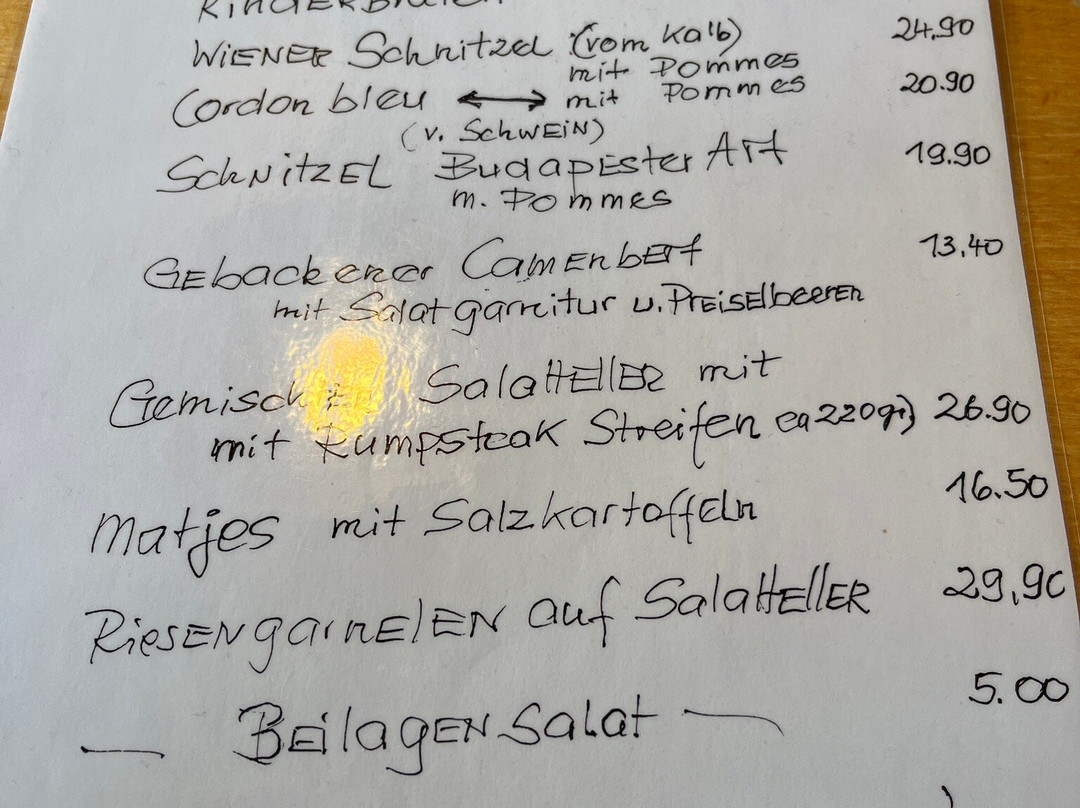 WIENER Schnitzel (vom Kalb) 24.90
mit Pommes
Cordon bleu ↔ mit Pommes 20.90
(v. SCHWEIN)
SCHNITZEL Budapester Art 19.90
m. Pommes
Gebackener Camenbert 13.40
mit Salatgarnitur u. Preiselbeeren
Gemischter Salatteller mit
mit Rumpsteak Streifen ca 220gr) 26.90
Matjes mit Salzkartoffeln 16.50
Riesengarnelen auf Salatteller 29,90
— Beilagen Salat — 5.00